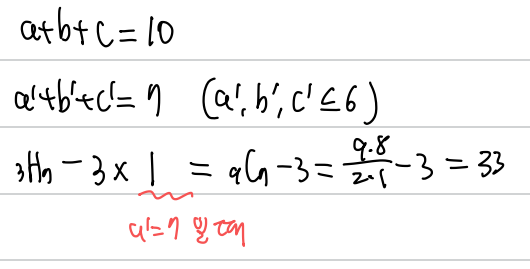 a+b+c=10
a'+b'+c'=7 (a', b', c' ≤6)
₃H₇ - 3×1 = ₉C₇ -3 = 9·8/2·1 -3 = 33
a'=7 일 때